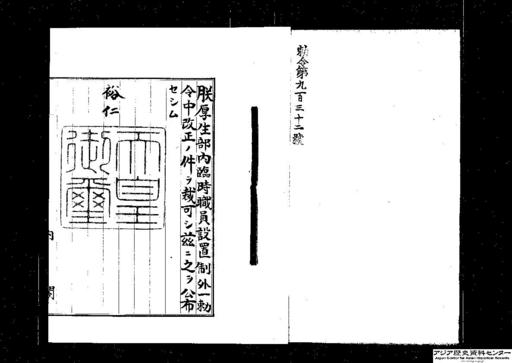 勅令第九百三十二號
朕厚生部內臨時職員設置制外一勅
令中改正ノ件ヲ裁可シ茲ニ之ヲ公布
セシム
裕仁
天皇
御璽
內
閣
アジア歴史資料センター
Japan Center for Asian Historical Records